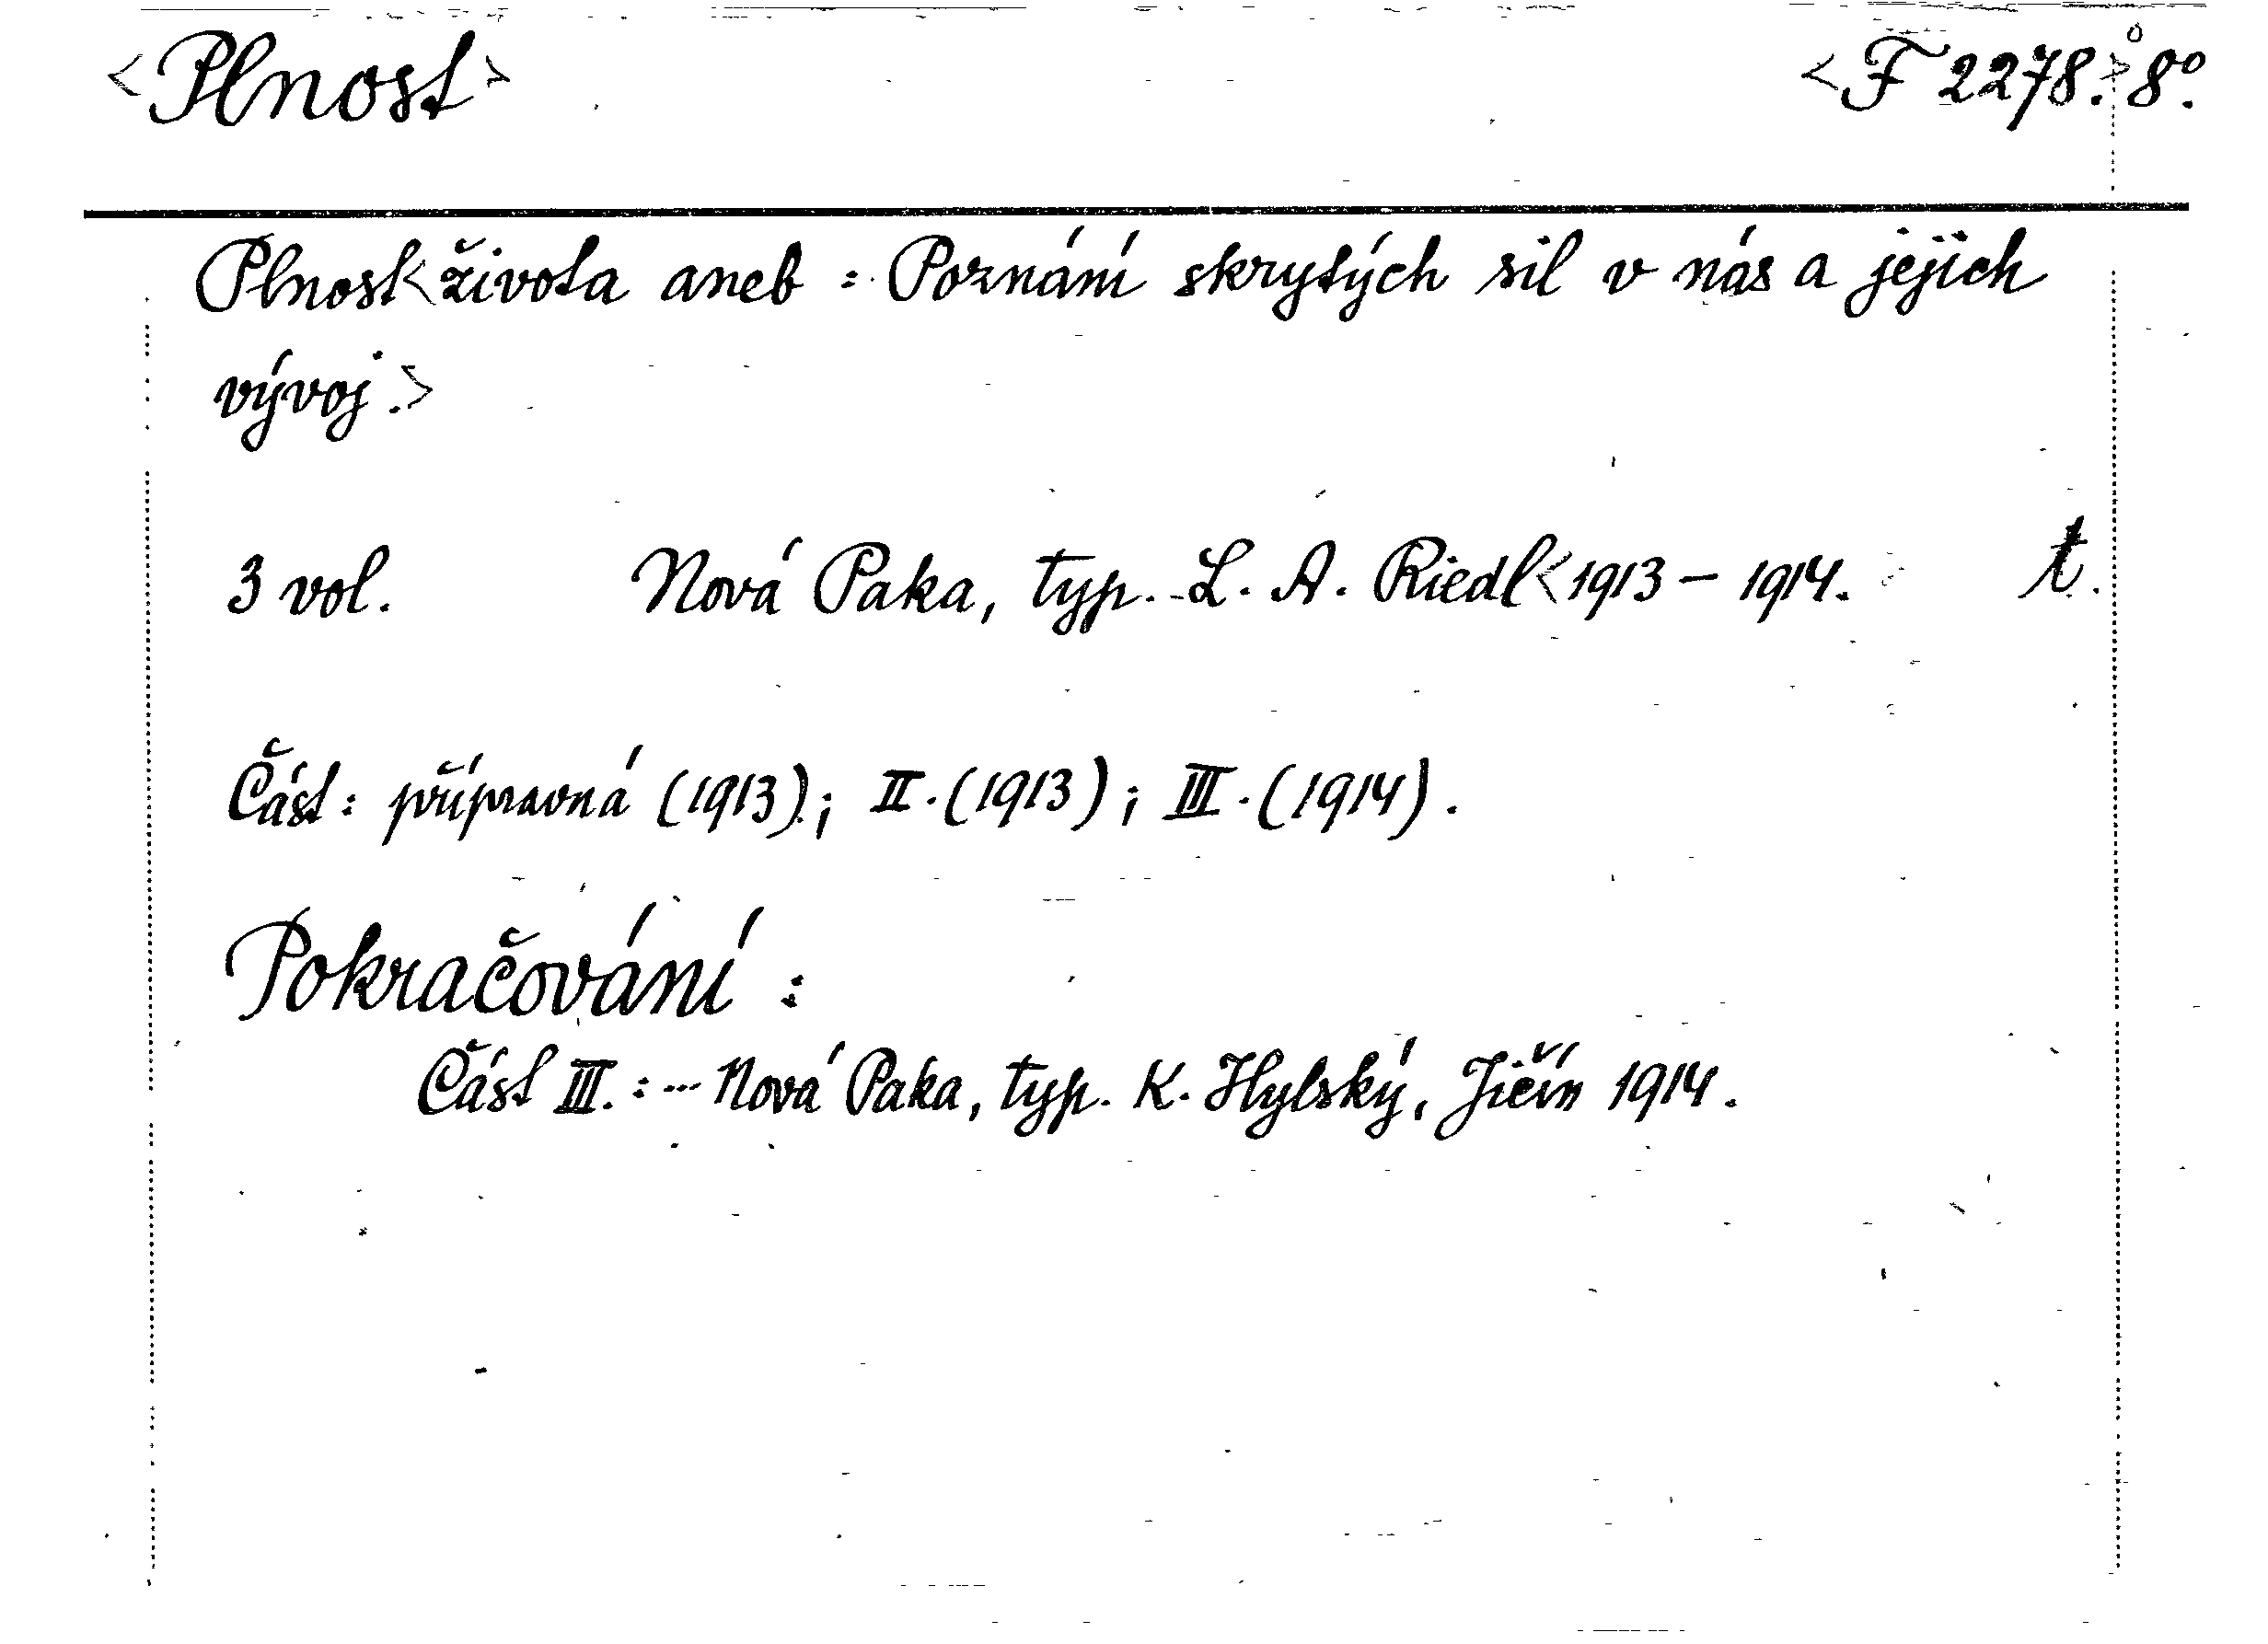 <Plnost> <F 2278.> 8°.
Plnost<života aneb: Poznání skrytých sil v nás a jejich
vývoj.>
3 vol. Nová Paka, typ. L. A. Riedl<1913 – 1914. t.
Část: přípravná (1913); II. (1913); III. (1914).
Pokračování:
Část III.: ... Nová Paka, typ. K. Hylský, Jičín 1914.